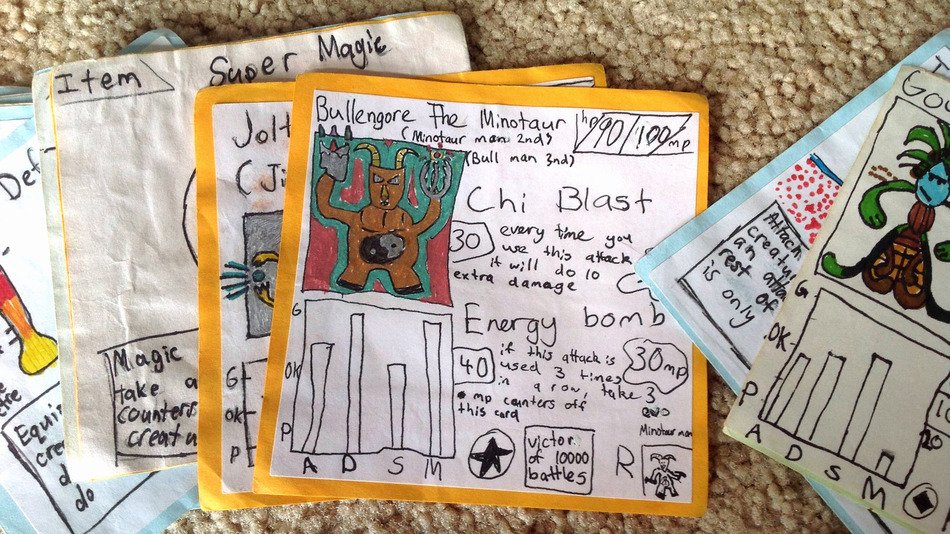 Item
Super Magic
Magic
take a
counters
creatu
Def
Equi
cre
d
do
Jolt
(Ji
G
OK
P
Bullengore The Minotaur
(Minotaur man 2nd)
(Bull man 3nd)
hp 90/100 mp
Chi Blast
30
every time you
use this attack
it will do 10
extra damage
Energy bomb
40
if this attack is
used 3 times
in a row, take 3
mp counters off
this card
30 mp
G
OK
P
A D S M
victor
of 10000
battles
R
Minotaur man
Attack
creatu
an atta
rest of
is only
Go
G
OK
P
A D S M